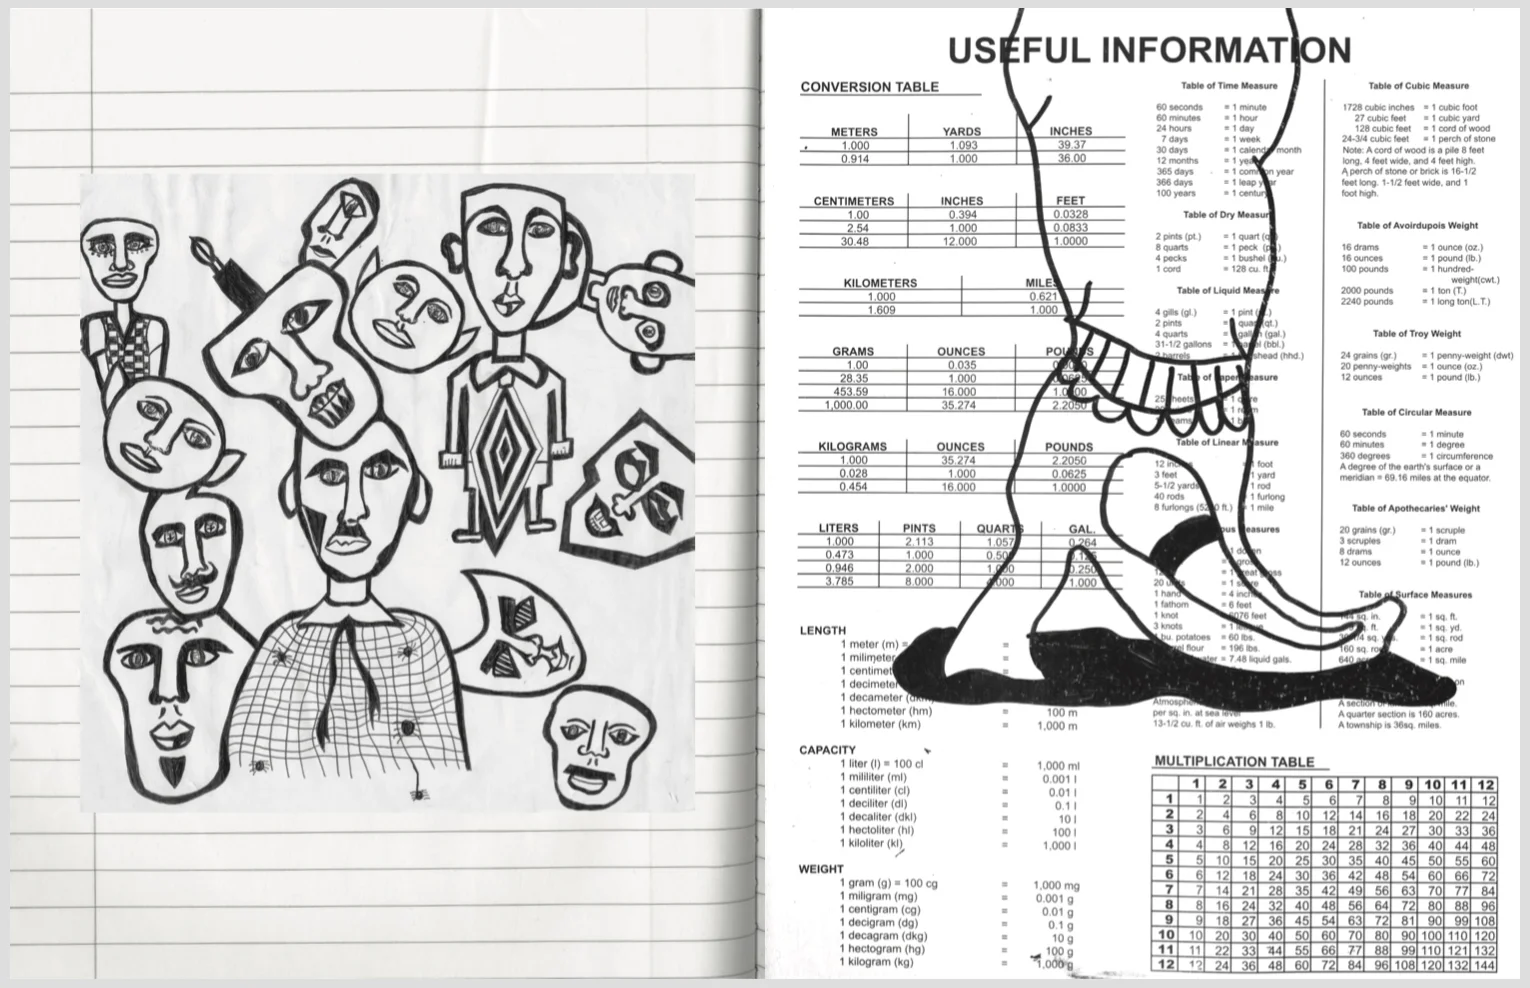 USEFUL INFORMATION
CONVERSION TABLE
METERS YARDS INCHES
1.000 1.093 39.37
0.914 1.000 36.00
CENTIMETERS INCHES FEET
1.00 0.394 0.0328
2.54 1.000 0.0833
30.48 12.000 1.0000
KILOMETERS MILES
1.000 0.621
1.609 1.000
GRAMS OUNCES POUNDS
1.00 0.035
28.35 1.000
453.59 16.000
1,000.00 35.274 2.2050
KILOGRAMS OUNCES POUNDS
1.000 35.274 2.2050
0.028 1.000 0.0625
0.454 16.000 1.0000
LITERS PINTS QUARTS GAL.
1.000 2.113 1.057 0.264
0.473 1.000
0.946 2.000 0.250
3.785 8.000 1.000
LENGTH
1 meter (m) =
1 milimeter
1 centimet
1 decimeter
1 decameter
1 hectometer (hm) = 100 m
1 kilometer (km) = 1,000 m
CAPACITY
1 liter (l) = 100 cl = 1,000 ml
1 mililiter (ml) = 0.001 l
1 centiliter (cl) = 0.01 l
1 deciliter (dl) = 0.1 l
1 decaliter (dkl) = 10 l
1 hectoliter (hl) = 100 l
1 kiloliter (kl) = 1,000 l
WEIGHT
1 gram (g) = 100 cg = 1,000 mg
1 miligram (mg) = 0.001 g
1 centigram (cg) = 0.01 g
1 decigram (dg) = 0.1 g
1 decagram (dkg) = 10 g
1 hectogram (hg) = 100 g
1 kilogram (kg) = 1,000 g
Table of Time Measure
60 seconds = 1 minute
60 minutes = 1 hour
24 hours = 1 day
7 days = 1 week
30 days = 1 calendar month
12 months = 1 year
365 days = 1 common year
366 days = 1 leap year
100 years = 1 century
Table of Dry Measure
2 pints (pt.) = 1 quart
8 quarts = 1 peck
4 pecks = 1 bushel
1 cord = 128 cu. ft.
Table of Liquid Measure
4 gills (gl.) = 1 pint
2 pints = quart (qt.)
4 quarts = gallon (gal.)
31-1/2 gallons = (bbl.)
(hhd.)
Table of Measure
Table of Linear Measure
12 foot
3 feet 1 yard
5-1/2 yards 1 rod
40 rods 1 furlong
8 furlongs ft.) 1 mile
Measures
20 units = 1
1 hand = 4 inch
1 fathom = 6 feet
1 knot feet
3 knots = 1
bu. potatoes = 60 lbs.
flour = 196 lbs.
= 7.48 liquid gals.
per sq. in. at sea level
13-1/2 cu. ft. of air weighs 1 lb.
Table of Cubic Measure
1728 cubic inches = 1 cubic foot
27 cubic feet = 1 cubic yard
128 cubic feet = 1 cord of wood
24-3/4 cubic feet = 1 perch of stone
Note: A cord of wood is a pile 8 feet
long, 4 feet wide, and 4 feet high.
A perch of stone or brick is 16-1/2
feet long. 1-1/2 feet wide, and 1
foot high.
Table of Avoirdupois Weight
16 drams = 1 ounce (oz.)
16 ounces = 1 pound (lb.)
100 pounds = 1 hundred-
weight(cwt.)
2000 pounds = 1 ton (T.)
2240 pounds = 1 long ton(L.T.)
Table of Troy Weight
24 grains (gr.) = 1 penny-weight (dwt)
20 penny-weights = 1 ounce (oz.)
12 ounces = 1 pound (lb.)
Table of Circular Measure
60 seconds = 1 minute
60 minutes = 1 degree
360 degrees = 1 circumference
A degree of the earth's surface or a
meridian = 69.16 miles at the equator.
Table of Apothecaries' Weight
20 grains (gr.) = 1 scruple
3 scruples = 1 dram
8 drams = 1 ounce
12 ounces = 1 pound (lb.)
Table of Surface Measures
sq. in. = 1 sq. ft.
ft. = 1 sq. yd.
= 1 sq. rod
160 sq. = 1 acre
640 = 1 sq. mile
A section mile.
A quarter section is 160 acres.
A township is 36sq. miles.
MULTIPLICATION TABLE
1 2 3 4 5 6 7 8 9 10 11 12
1 1 2 3 4 5 6 7 8 9 10 11 12
2 2 4 6 8 10 12 14 16 18 20 22 24
3 3 6 9 12 15 18 21 24 27 30 33 36
4 4 8 12 16 20 24 28 32 36 40 44 48
5 5 10 15 20 25 30 35 40 45 50 55 60
6 6 12 18 24 30 36 42 48 54 60 66 72
7 7 14 21 28 35 42 49 56 63 70 77 84
8 8 16 24 32 40 48 56 64 72 80 88 96
9 9 18 27 36 45 54 63 72 81 90 99 108
10 10 20 30 40 50 60 70 80 90 100 110 120
11 11 22 33 44 55 66 77 88 99 110 121 132
12 12 24 36 48 60 72 84 96 108 120 132 144